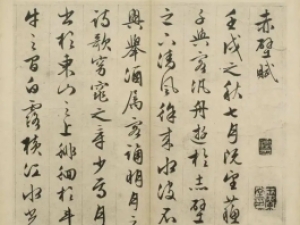 赤壁賦
壬戌之秋七月既望蘇
子與客泛舟遊於赤壁
之下清風徐來水波不
興舉酒属客誦明月之
詩歌窈窕之章少焉月
出於東山之上徘徊於斗
牛之間白露橫江水光